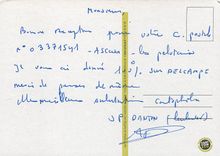 Monsieur
Bonne reception pour votre C. postal
n° 0337 1541 - ASCAIN - Les pelotaris
Je vous ai donné 100% sur DELCAMPE
merci de penser de même
Meilleures salutations cartophiles
JP DANTON